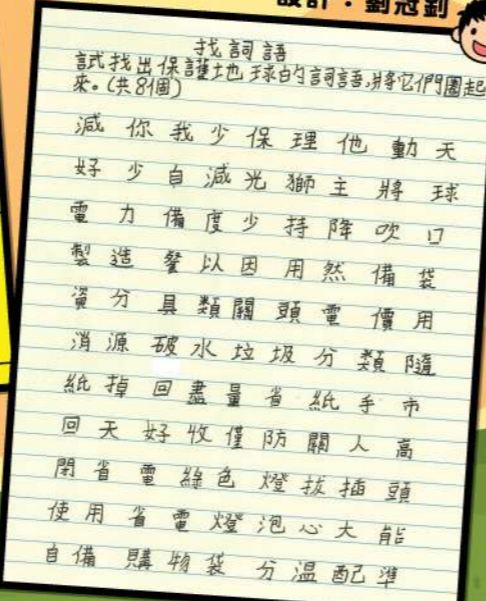 設計：劉冠釗
找詞語
試找出保護地球的詞語,將它們圈起
來。(共8個)
減 你 我 少 保 理 他 動 天
好 少 自 減 光 獅 主 將 球
電 力 備 度 少 持 降 吹 口
製 造 餐 以 因 用 然 備 袋
資 分 具 類 關 頭 電 價 用
消 源 破 水 垃 圾 分 類 隨
紙 掉 回 盡 量 省 紙 手 市
回 天 好 收 僅 防 關 人 高
閉 省 電 綠 色 燈 拔 插 頭
使 用 省 電 燈 泡 心 大 能
自 備 購 物 袋 分 溫 配 準